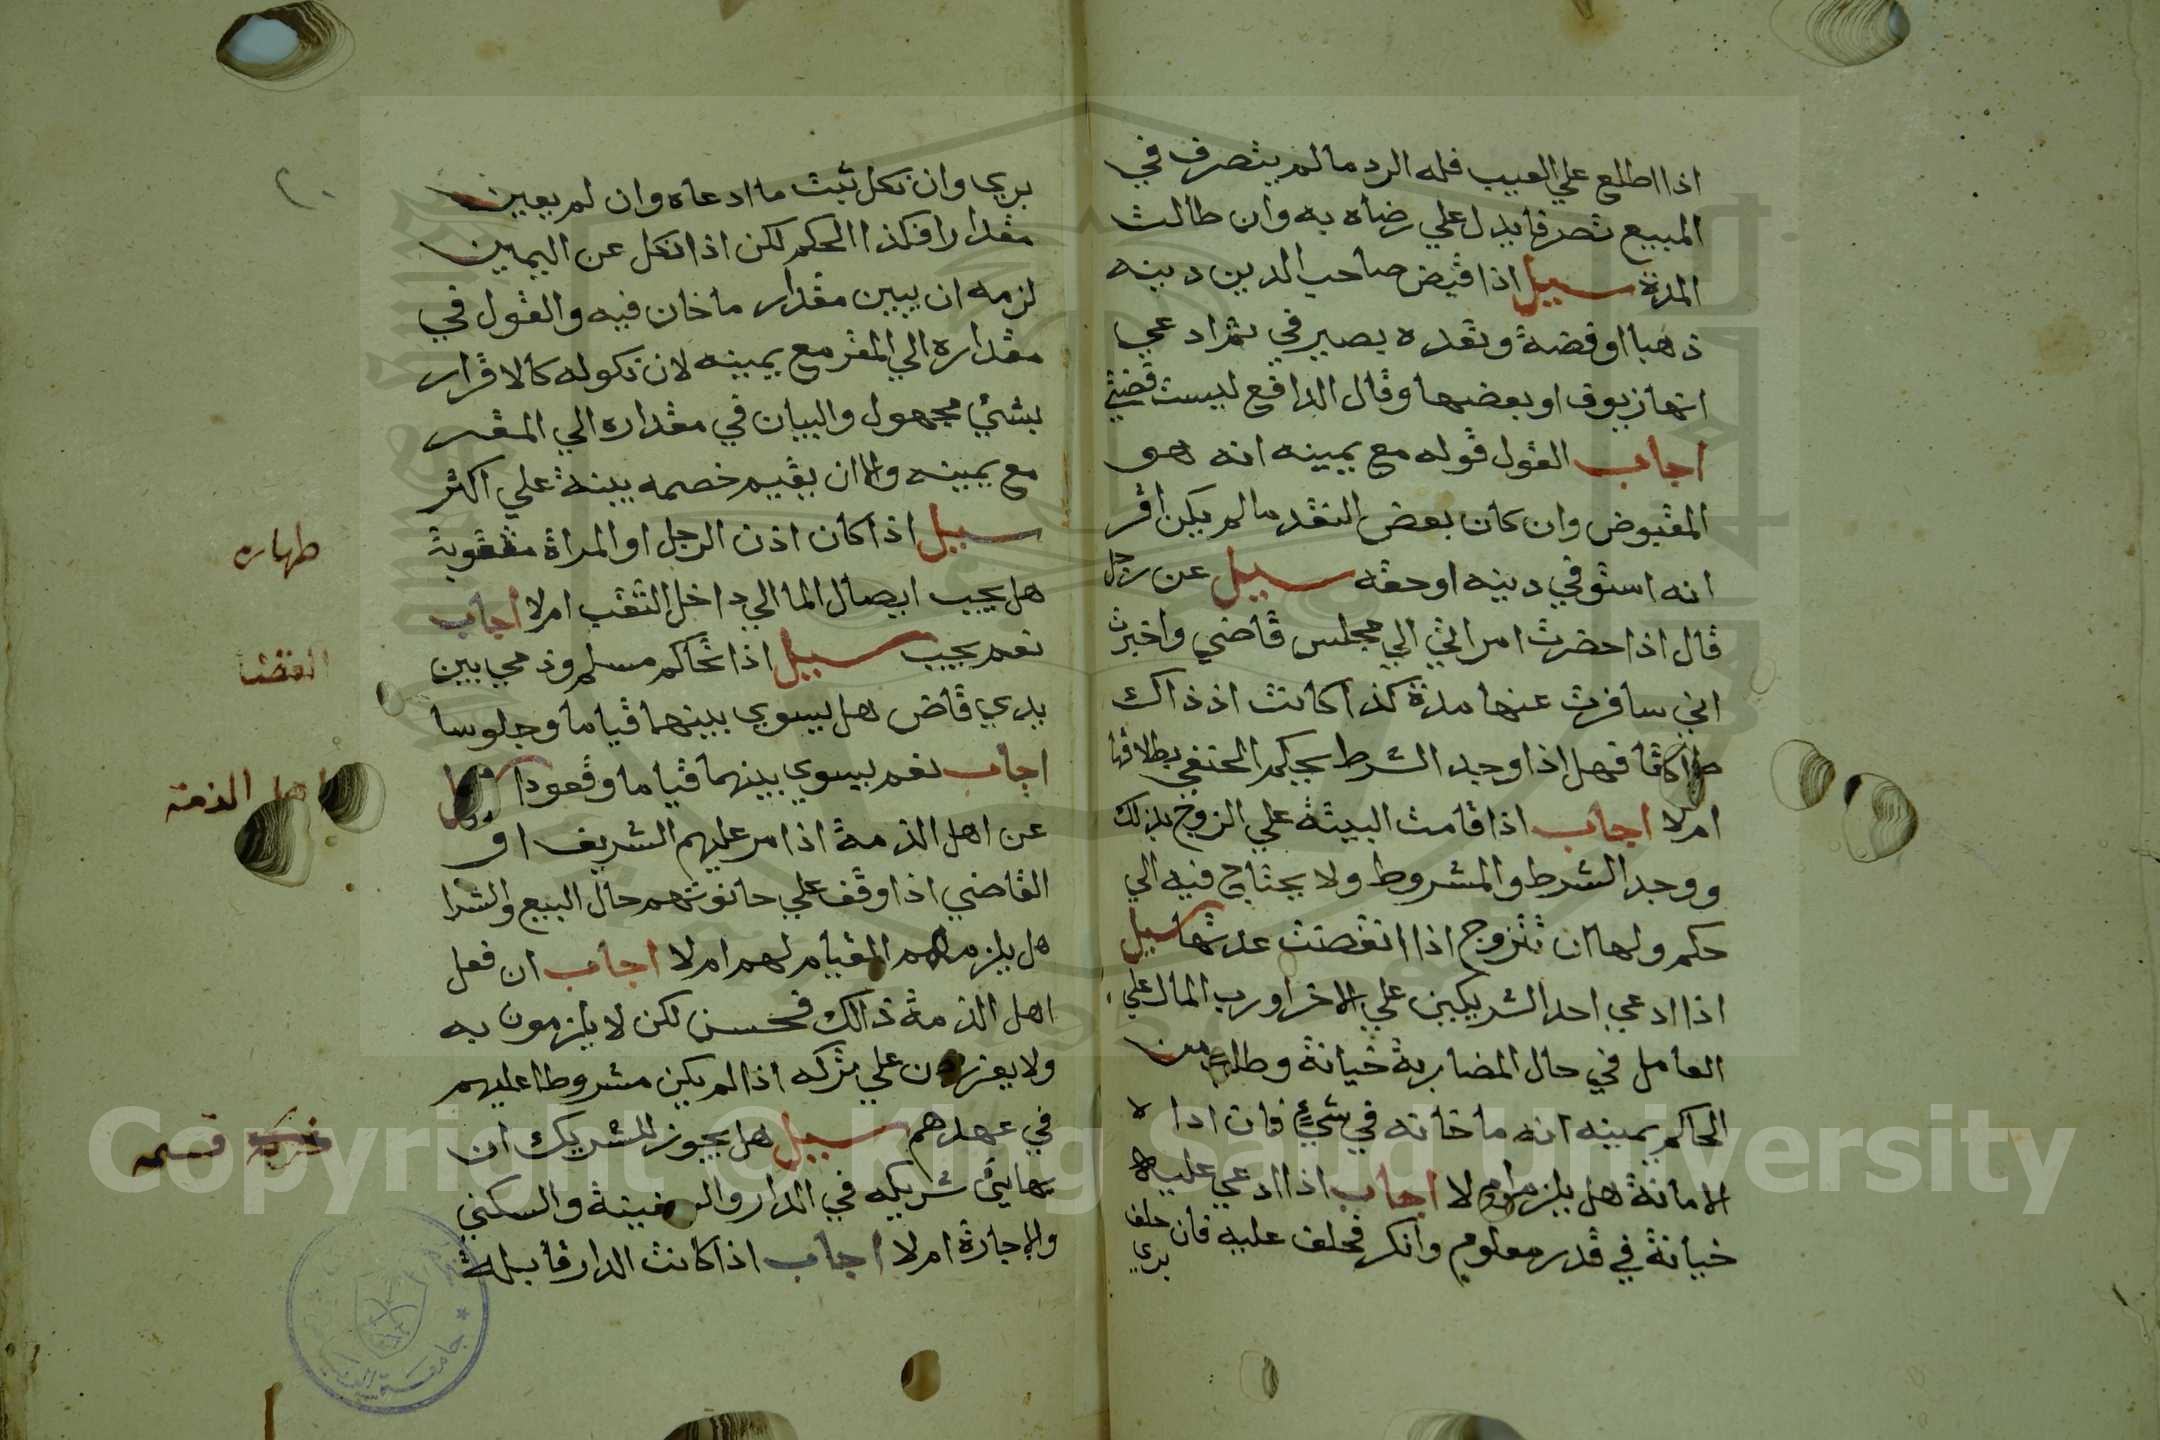 اذا اطلع علي العيب فله الرد ما لم يتصرف في
المبيع تصرفا يدل علي رضاه به وان طالت
المدة سييل اذا قبض صاحب الدين دينه
ذهبا او فضة ونقده بصيرفي ثم ادعي
انها زيوف او بعضها وقال الدافع ليست فضتي
اجاب القول قوله مع يمينه انه هو
المقبوض وان كان بعض النقد ما لم يكن اقر
انه استوفي دينه او حقه سييل عن رجل
قال اذا حضرت امراتي الي مجلس قاضي واخبرت
اني سافرت عنها مدة كذا كانت اذ ذاك
طالقا فهل اذا وجد الشرط يحكم الحنفي بطلاقها
ام لا اجاب اذا قامت البينة علي الزوج بذلك
ووجد الشرط والمشروط ولا يحتاج فيه الي
حكم ولها ان تتزوج اذا انقضت عدتها سييل
اذا ادعي احد الشريكين علي الاخر او رب المال علي
العامل في حال المضاربة خيانة وطلب من
الحاكم يمينه انه ما خانه في شيء فان ادا لا
الامانة هل يلزم ام لا اجاب اذا ادعي عليه
خيانة في قدر معلوم وانكر فحلف عليه فان حلف
بري
بري وان نكل ثبت ما ادعاه وان لم يعين
مقدارا فكذا الحكم لكن اذا نكل عن اليمين
لزمه ان يبين مقدار ما خان فيه والقول في
مقداره الي المقر مع يمينه لان نكوله كالاقرار
بشيء مجهول والبيان في مقداره الي المقر
مع يمينه والا ان يقيم خصمه بينة علي اكثر
سييل اذا كان اذن الرجل او المراة مثقوبة
هل يجب ايصال الما الي داخل الثقب ام لا اجاب
نعم يجب سييل اذا تحاكم مسلم وذمي بين
يدي قاض هل يسوي بينهما قياما وجلوسا
اجاب نعم يسوي بينهما قياما وقعودا سييل
عن اهل الذمة اذا مر عليهم الشريف او
القاضي اذا وقف علي حانوتهم حال البيع والشرا
هل يلزمهم القيام لهم ام لا اجاب ان فعل
اهل الذمة ذالك فحسن لكن لا يلزمون به
ولا يعزرون علي تركه اذا لم يكن مشروطا عليهم
في عهدهم سييل هل يجوز للشريك ان
يهايئ شريكه في الدار والسفينة والسكني
والاجارة ام لا اجاب اذا كانت الدار قابلة
طهاره
القضا
اهل الذمة
شركة قسمه
Copyright © King Saud University